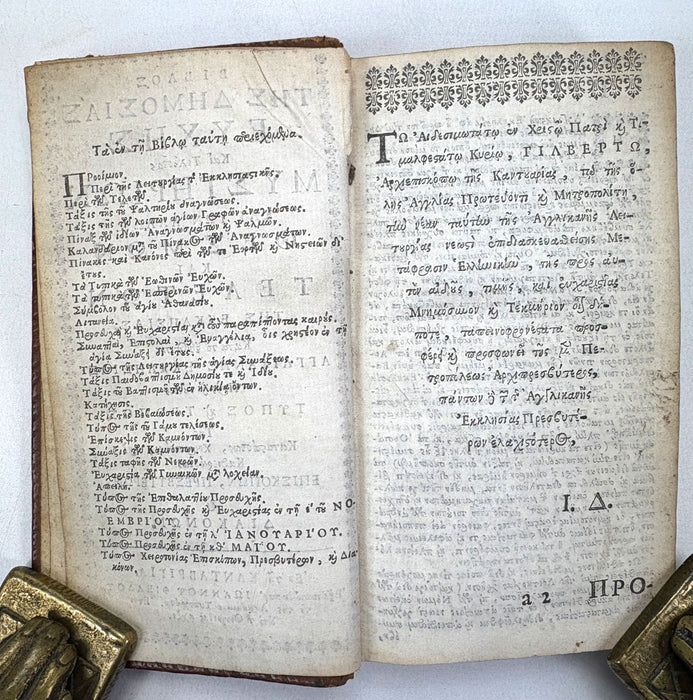 Τὰ ἐν τῇ Βίβλῳ ταύτῃ περιεχόμενα.
Προοίμιον.
Περὶ τῆς Λειτουργίας τ͂ Ἐκκλησιαστικῆς.
Περὶ τῶν Τελετῶν.
Τάξις τῆς τῦ Ψαλτηρίυ ἀναγνώσεως.
Τάξις τῆς τῶν λοιπῶν ἁγίων Γραφῶν ἀναγνώσεως.
Πίναξ τῶν ἰδίων Ἀναγνωσμάτων κ̀ Ψαλμῶν.
Καλανδάριον μ͂ τῦ Πίνακος τῶν Ἀναγνωσμάτων.
Πίνακες καὶ Κανόνες περὶ τῶν τε Ἑορτῶν κ̀ Νηστειῶν δι᾽
ἔτυς.
Τὰ Τυπικὰ τῶν Ἑωθινῶν Εὐχῶν.
Τὰ τυπικὰ τῶν Ἑσπερινῶν Εὐχῶν.
Σύμβολον τῦ ἁγίυ Ἀθανασίυ.
Λιτανεία.
Προσευχαὶ κ̀ Εὐχαριστίαι κτ̀ τὺς παραπίπτοντας καιρύς.
Συναπταὶ, Ἐπιστολαὶ, κ̀ Εὐαγγέλια, οἷς χρηστέον ἐν τῇ
ἁγίᾳ Συνάξει δι᾽ ἔτυς.
Τύπος τῆς Λειτυργίας τῆς ἁγίας Συνάξεως.
Τάξις Παιδοβαπτισμῦ Δημοσίυ τε κ̀ Ἰδίυ.
Τάξις τῦ Βαπτισμῦ τῶν ἐν ἡλικίᾳ ὄντων.
Κατήχησις.
Τάξις τῆς Βεβαιώσεως.
Τύπος τῆς τῦ Γάμυ τελέσεως.
Ἐπίσκεψις τῶν Καμνόντων.
Σύναξις τῶν Καμνόντων.
Τάξις ταφῆς τῶν Νεκρῶν.
Εὐχαριστία τῶν Γυναικῶν μ͂ λοχείαν.
Ἀπειλή.
Τύπος τῆς Ἐπιθαλαττίυ Προσευχῆς.
Τύπος Προσευχῆς κ̀ Εὐχαριστίας ἐν τῇ ε´ τῦ ΝΟ-
ΕΜΒΡΙΟΥ.
Τύπος Προσευχῆς ἐν τῇ λ´ ἸΑΝΟΥΑΡΙΟΥ.
Τύπος Προσευχῆς ἐν τῇ κθ´ ΜΑΙΟΥ.
Τύπος Χειροτονίας Ἐπισκόπων, Πρεσβυτέρων, κ̀ Δια-
κόνων.
ΤΩ Αἰδεσιμωτάτῳ ἐν Χριστῷ Πατρὶ κ̀ Τι-
μαλφεστάτῳ Κυρίῳ, ΓΙΛΒΕΡΤΩ,
Ἀρχιεπισκόπῳ τῆς Κανταρίας, τῦ τῆς ὅ-
λης Ἀγγλίας Πρωτεύοντι κ̀ Μητροπολίτῃ,
τὴν νέαν ταύτην τῆς Ἀγγλικανῆς Λει-
τυργίας νεωστὶ ἐπιδιασκευαθείσης Με-
τάφρασιν Ἑλληνικὴν, τῆς πρὸς αὐ-
τὸν αἰδῦς, πίστεως, καὶ εὐχαριστίας
Μνημόσυνον κ̀ Τεκμήριον
ποτε, ταπεινοφρονέστατα προσ-
φέρει κ̀ προσφωνεῖ τῆς μ͂ Πε-
τροπόλεως Ἀρχιπρεσβύτερος,
πάντων κ̀ τ͂ τ͂ Ἀγγλικανῆς
Ἐκκλησίας Πρεσβυτέ-
ρων ἐλαχιστότερος,
Ι. Δ.
a 2 ΠΡΟ-